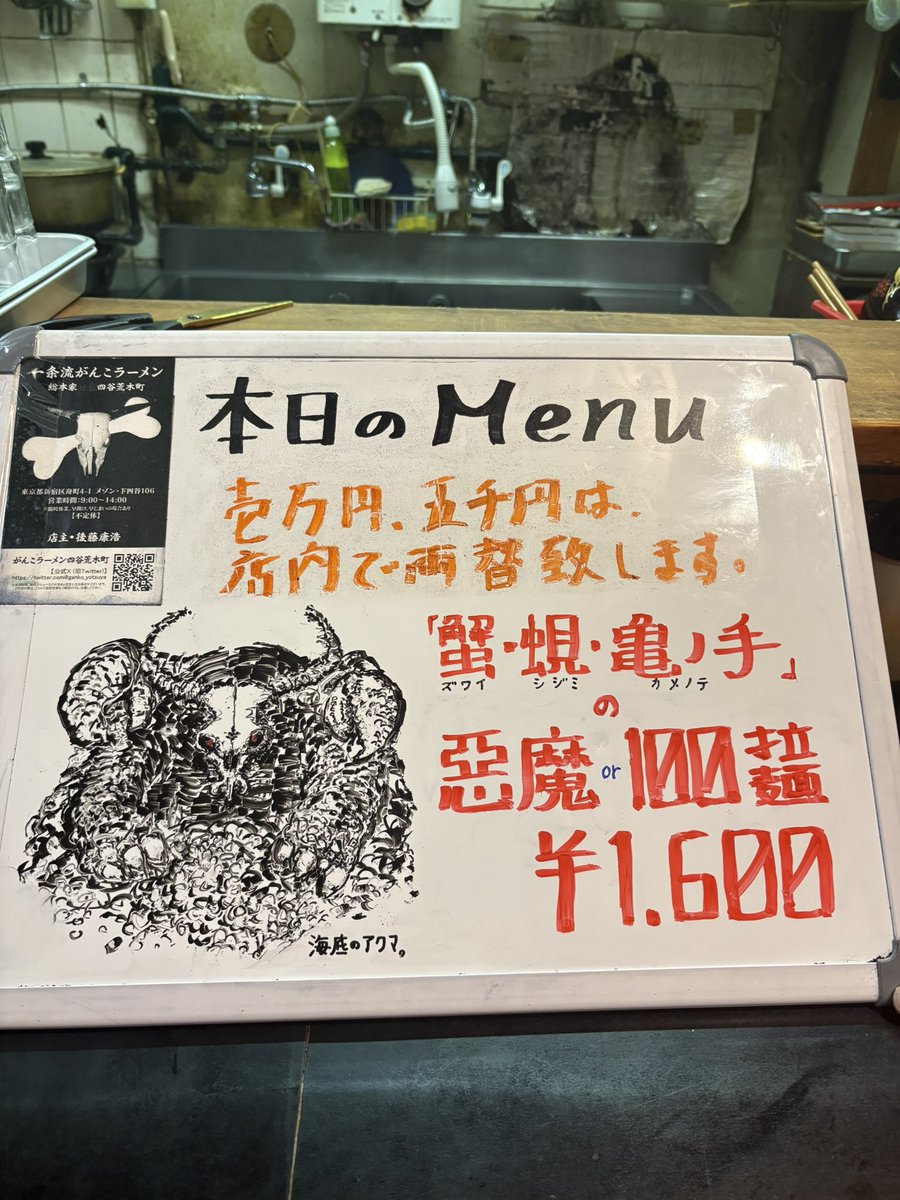 一条流がんこラーメン
総本家 四谷荒木町
東京都新宿区舟町4-1 メゾン・ド四谷106
営業時間:9:00〜14:00
【不定休】
店主・後藤康浩
がんこラーメン四谷荒木町
【公式X(旧Twitter)】
https://twitter.com@ganko_yotsuya
本日のMenu
壱万円、五千円は、
店内で両替致します。
「蟹・蜆・亀ノ手」
ズワイ シジミ カメノテ
の
惡魔or100拉麵
¥1.600
海底のアクマ。